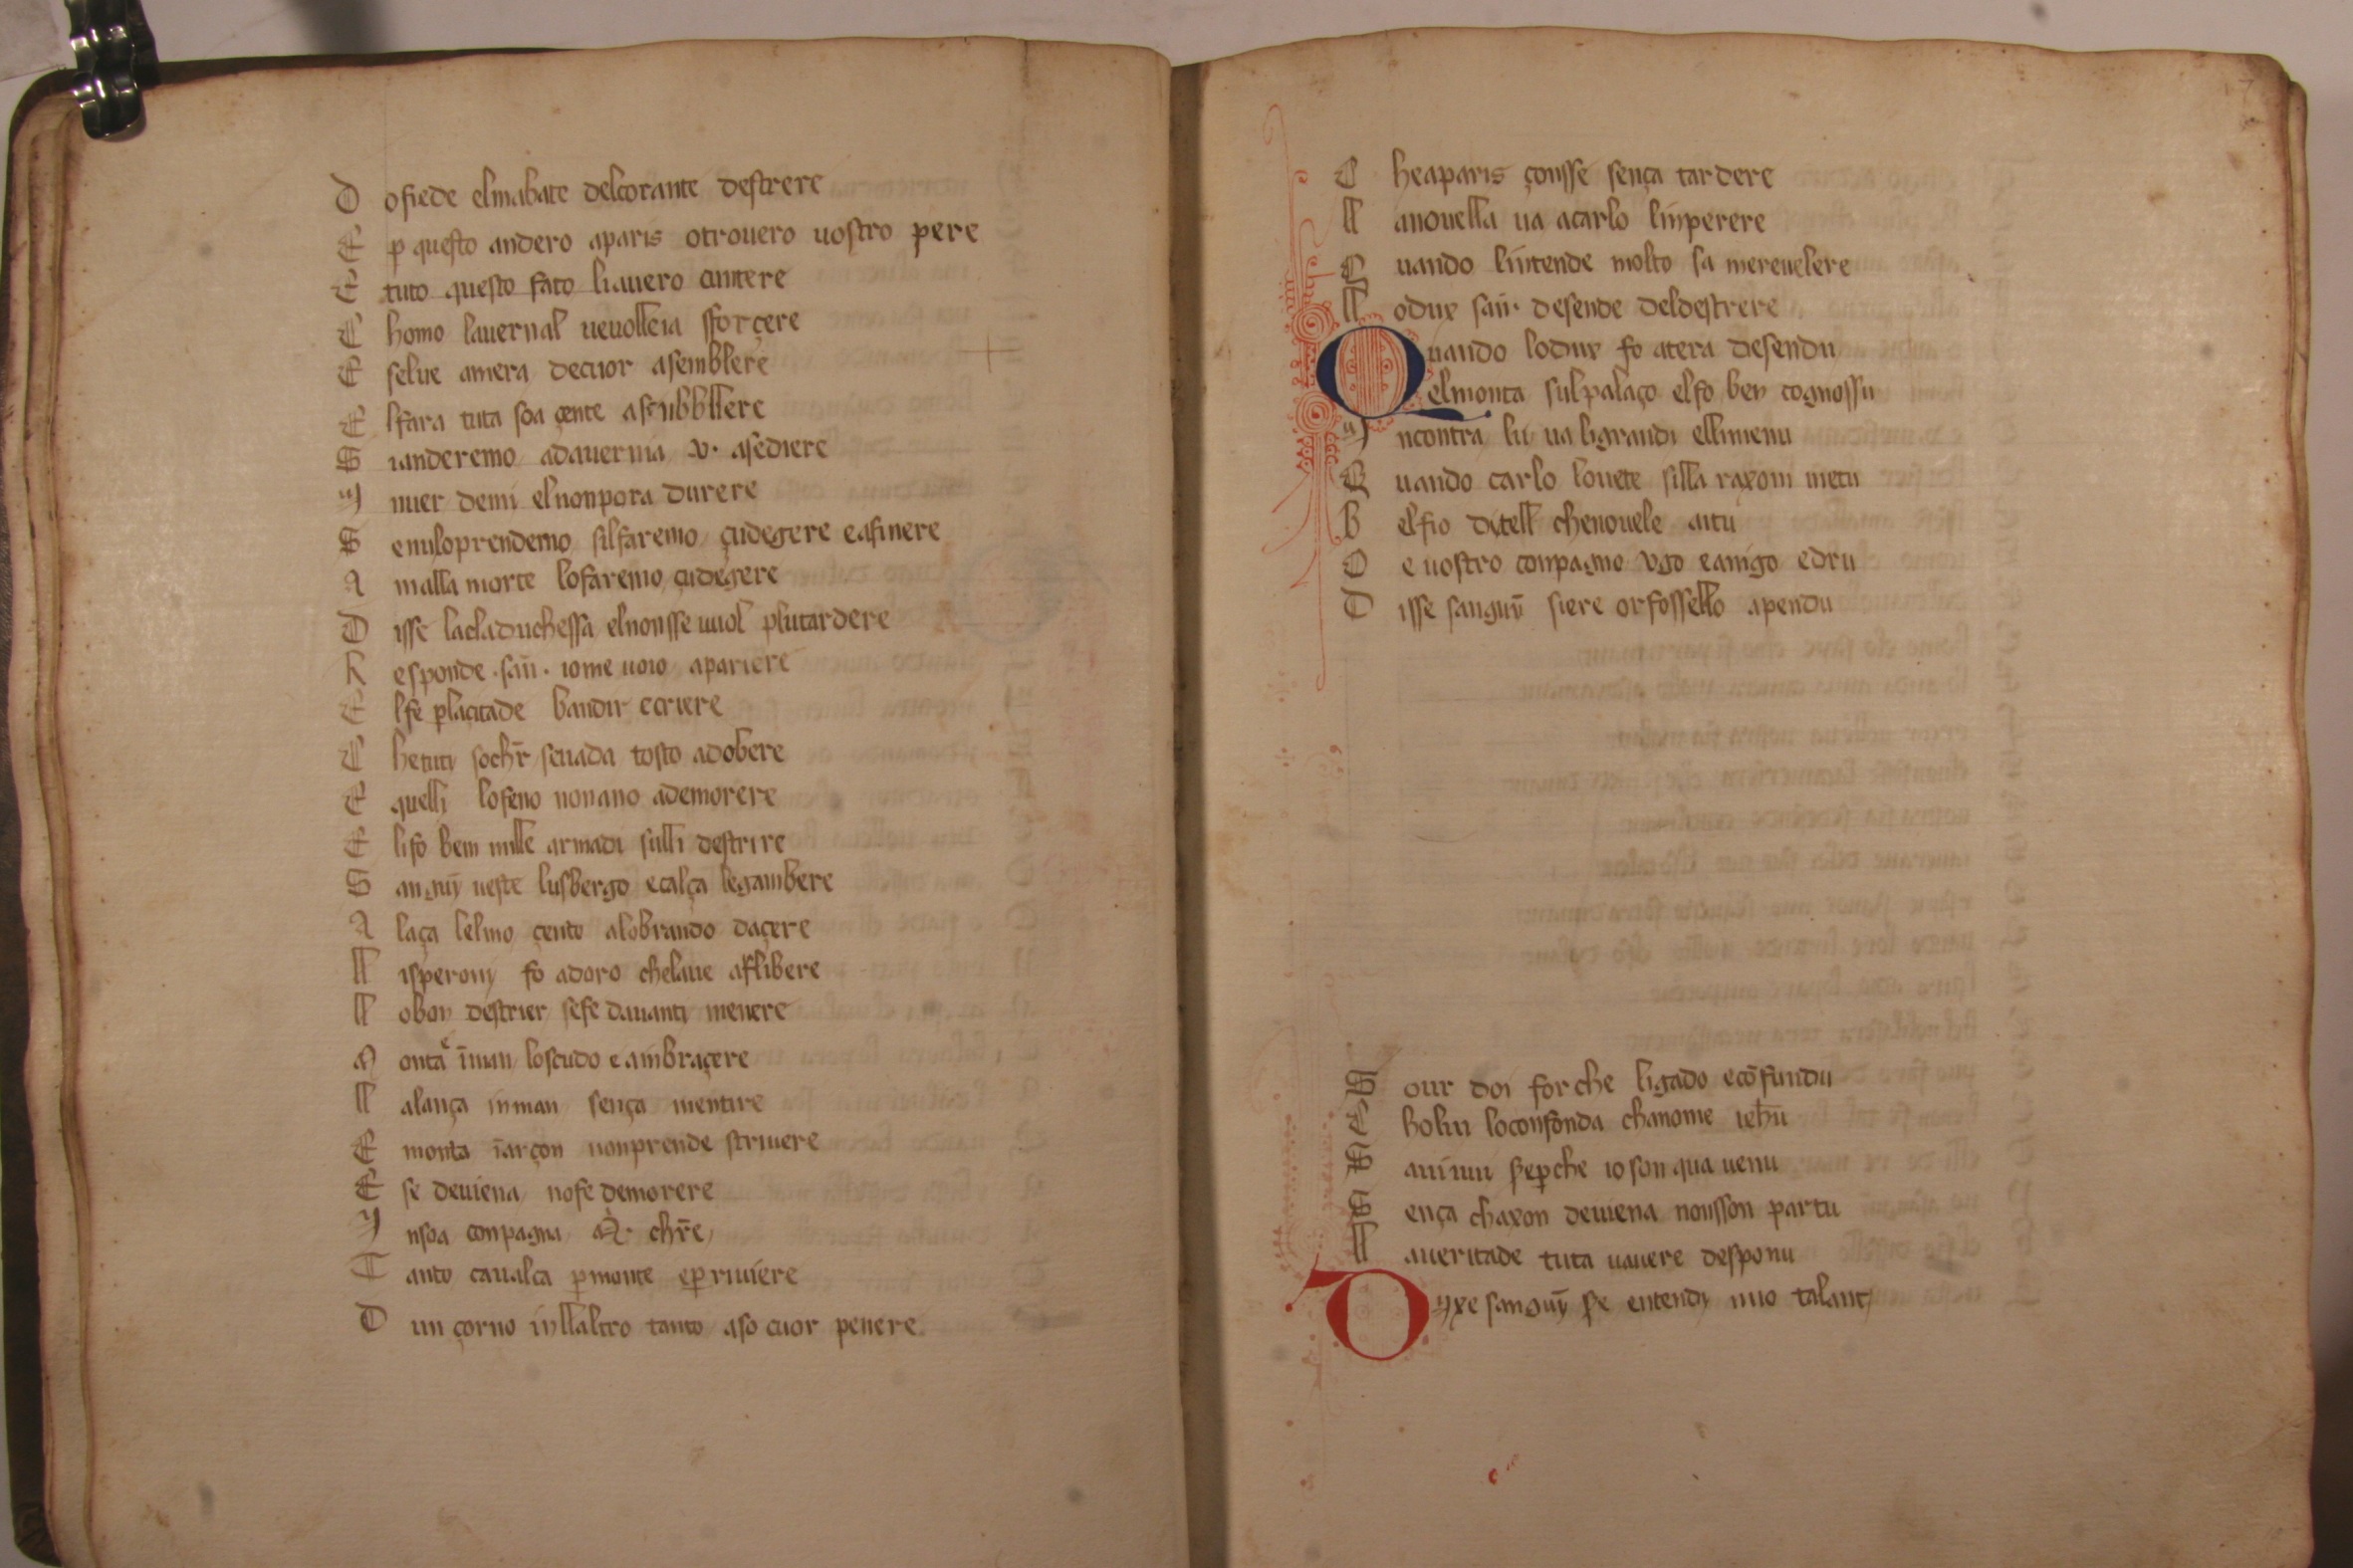 D ofiede elmabate delcorante destrere
E p questo andero aparis otrouero uostro pere
E tuto questo fato liauero cuntere
C homo lauernal ueuolleia sforçere
E selue amera decuor asemblere
E lfara tuta soa çente asenbbllere
S ianderemo adauernia v· asediere
I nuer demi elnonpora durere
S enuiloprendemo silfaremo çudegere eafinere
A malla morte lofaremo çudegere
D isse lacladuchessa elnonsse uuol plutardere
R esponde ·san̄· iome uoio apariere
E lfe placitade bandir ecriere
C hetuti sochr̄ senada tosto adobere
E quelli lofeno nonano ademorere
E lifo bem mille armadi sulli destrire
S anguȳ ueste lusbergo ecalça legambere
A laça lelmo çento alobrando daçere
ll isperony fo adoro chelaue afilibere
ll obon destrier sefe dauanti menere
M onta īman loscudo e ambraçere
ll alança inman sença mentire
E monta īarçon nonprende striuere
E se deuiena nofe demorere
I nsoa conpagna M· chr̄e
T anto caualca pmonte epriuiere
D un çorno inllaltro tanto aso cuor penere
C heaparis çonsse sença tardere
ll anouella ua acarlo linperere
Q uando lintende molto sa mereuelere
ll odux san̄· desende deldestrere
Q uando lodux fo atera desendu
elmonta sulpalaço elfo ben cognossu
I ncontra lu ua ligrandi ellimenu
Q uando carlo louete silla raxoni metu
B elfio ditell chenouele aitu
O e uostro conpagno vgo eamigo edru
D isse sanguȳ siere orfossello apendu
S our doi forche ligado ecōfundu
C holui loconfonda chanome iehū
S auiuu perche io son qua uenu
S ença chaxon deuiena nonsson partu
ll aueritade tuta uauere desponu
D yxe sanguȳ se entendy mio talant